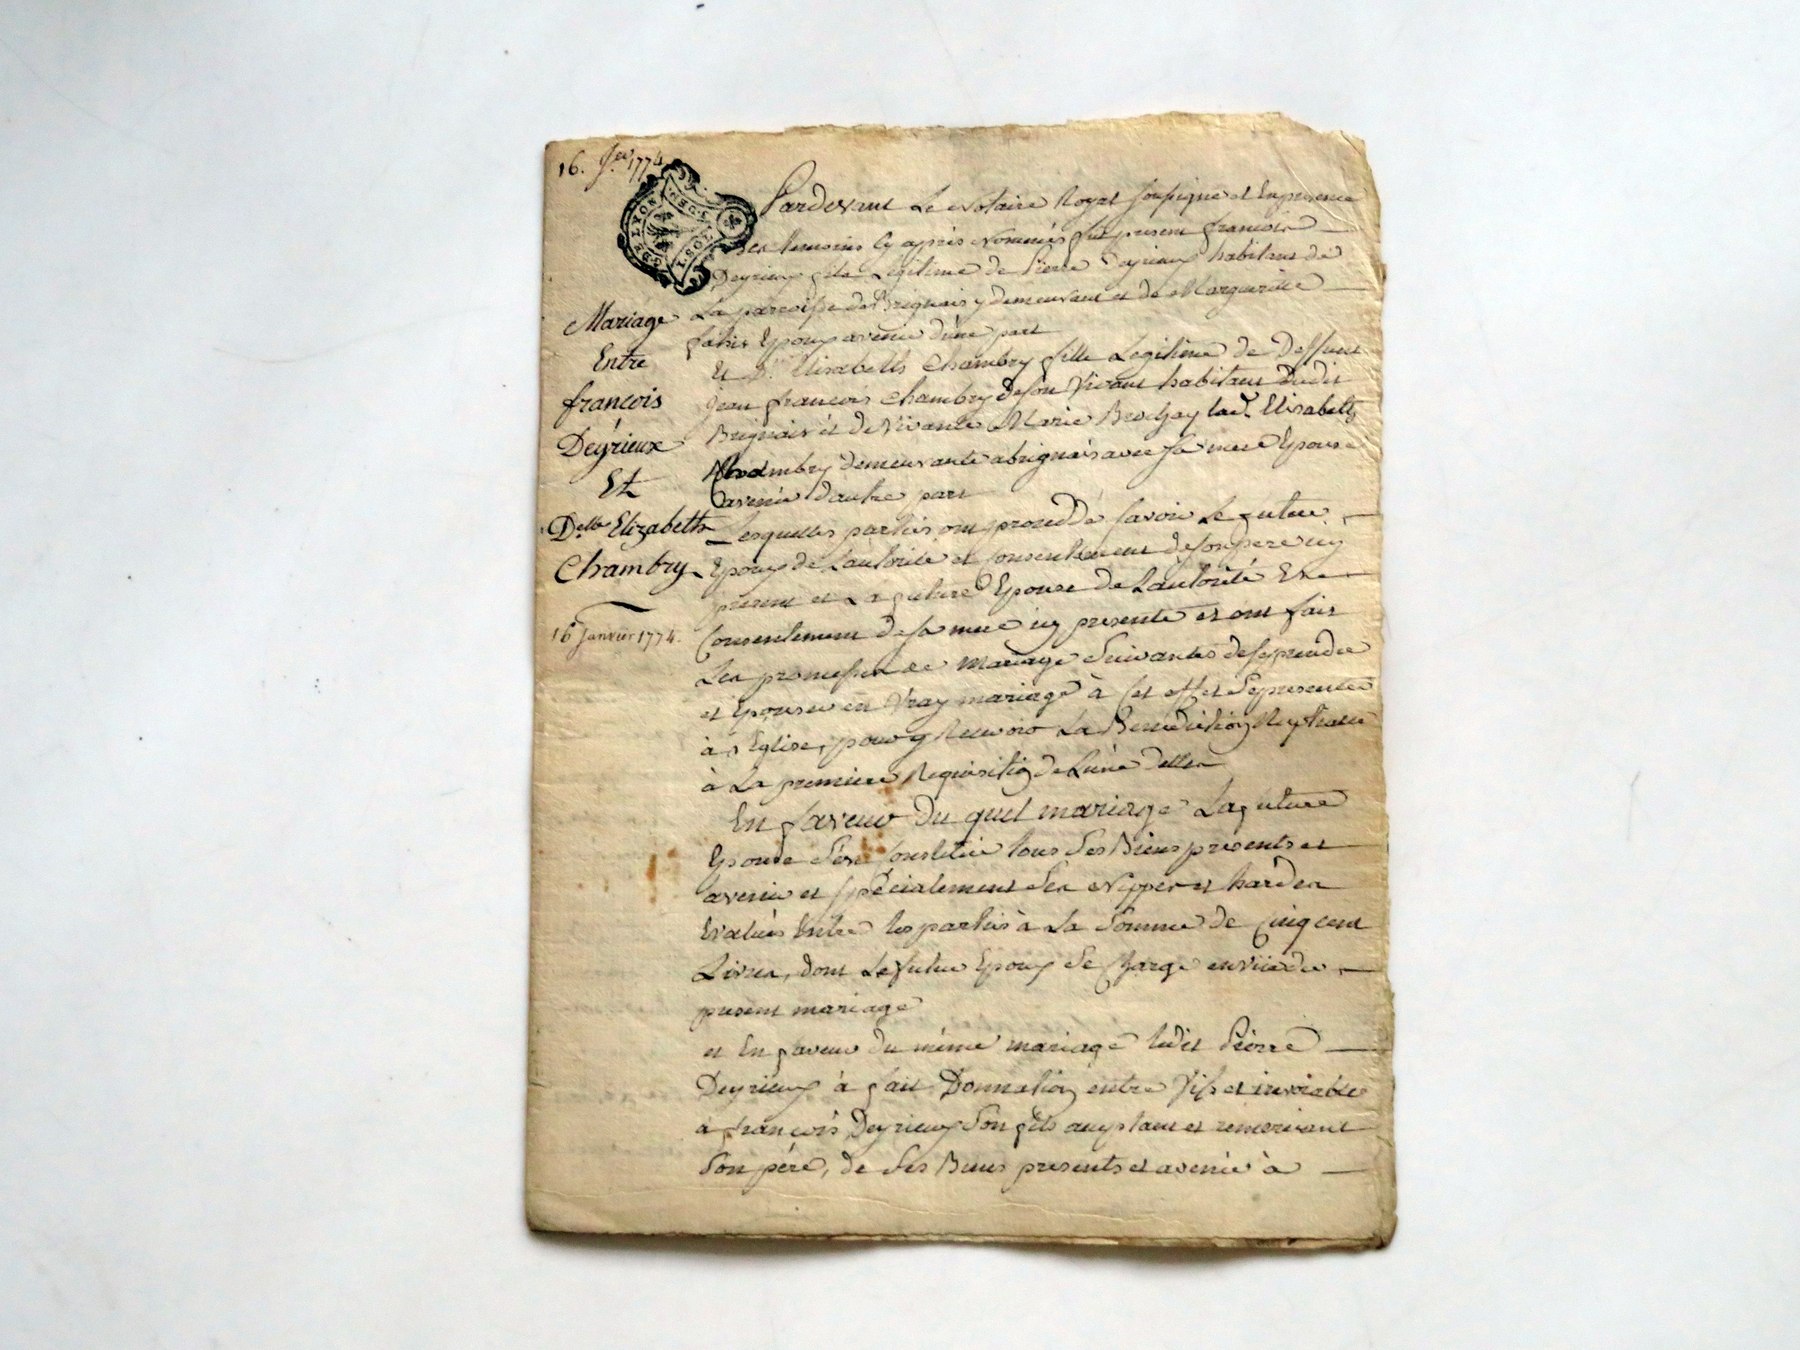 16. Jer. 1774
GE LYON
Mariage
Entre
françois
Deyrieux
Et
Delle Elizabeth
Chambry
16 Janvier 1774.
Pardevant Le Notaire Royal soussigné et En presence
des temoins Cy après Nommés fut present francois
Deyrieux fils Legitime de Pierre Deyrieux habitant de
La paroisse de Brignais y demeurant et de Margueritte
Epoux avenir d'une part
Et Dlle Elisabeth Chambry fille Legitime de Deffunt
jean francois Chambry de son Vivant habitant dudit
Brignais et de Vivante Marie lade. Elisabeth
Chambry demeurante a brignais avec sa mere Epouse
avenir d'autre part
Lesquelles parties ont procédé savoir Le futur
Epoux de L'autorité et consentement de son pere icy
present et La future Epouse de L'autorité Et
Consentement de sa mere icy presente et ont fait
Les promesses de mariage Suivantes de se prendre
et Epouser en Vray mariage à Cet effet Se presenter
à L'Eglise, pour y Recevoir La Benediction Nuptialle
à La premiere Requisition de L'une d'elles
En faveur Du quel mariage La future
Epouse S'est Constitué tous Ses Biens presents et
avenir et spécialement Ses Nippes et hardes
Evalués Entre les parties à La Somme de Cinq cent
Livres, dont Le futur Epoux Se Charge du
present mariage
et En faveur du même mariage ledit Pierre
Deyrieux à fait Donnation entre Vifs et
à françois Deyrieux Son fils acceptant et remerciant
Son pére, de Ses Biens presents et avenir à